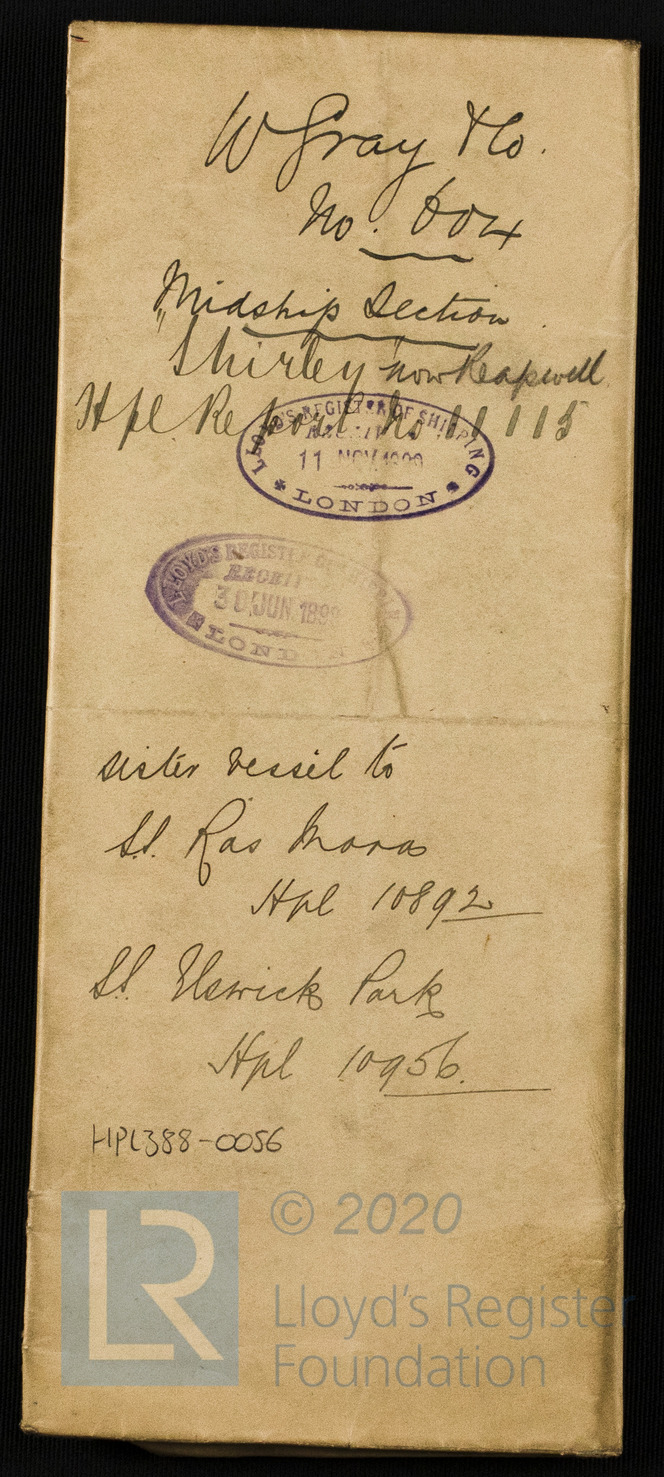 W Gray & Co.
No. 604
Midship Section
"Shirley" now Reapwell
Hpl. Report No 11115
LLOYD'S REGISTER OF SHIPPING
RECEIVED
11 NOV. 1899
* LONDON *
LLOYD'S REGISTER OF
RECEI
30 JUN. 1899
LONDON
sister vessel to
S.S. Ras Mora
Hpl 10892
S.S. Elswick Park
Hpl 10956.
HPL388-0056
LR
© 2020
Lloyd's Register
Foundation